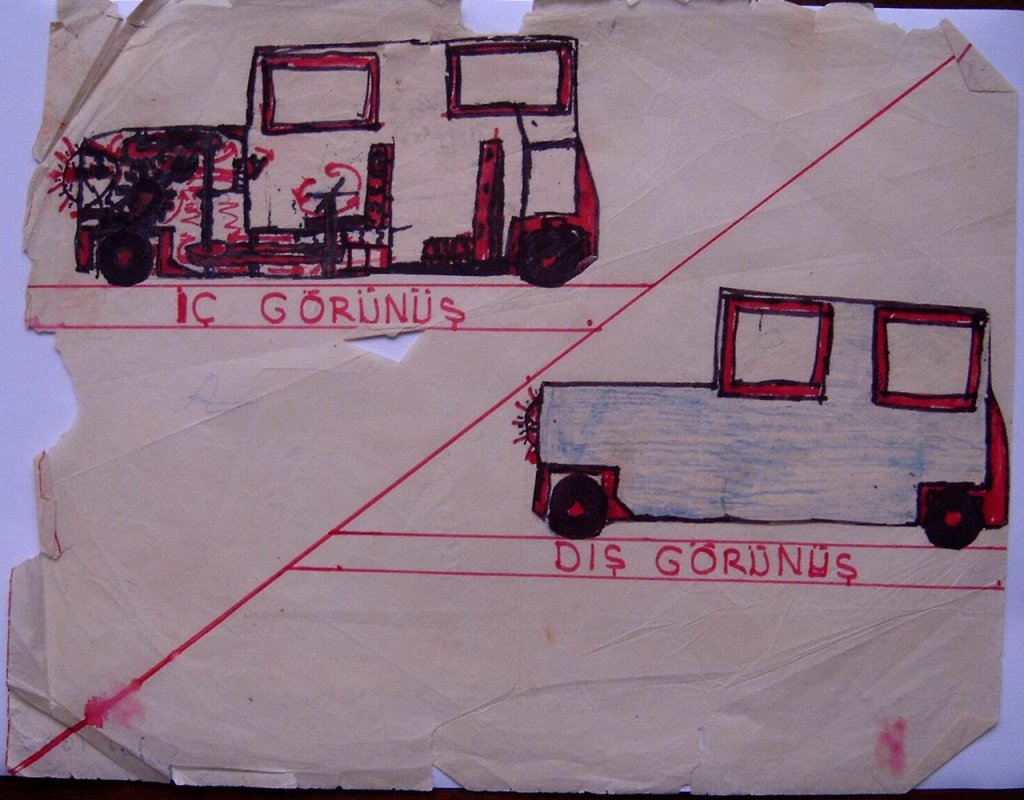 İÇ GÖRÜNÜŞ
DIŞ GÖRÜNÜŞ